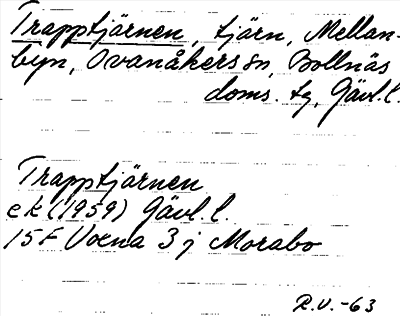 Trapptjärnen, tjärn, Mellan-
byn, Ovanåkers sn, Bollnäs
doms. tg, Gävl.l.
Trapptjärnen
ek (1959) Gävl.l.
15F Voxna 3j Morabo
R.U.-63